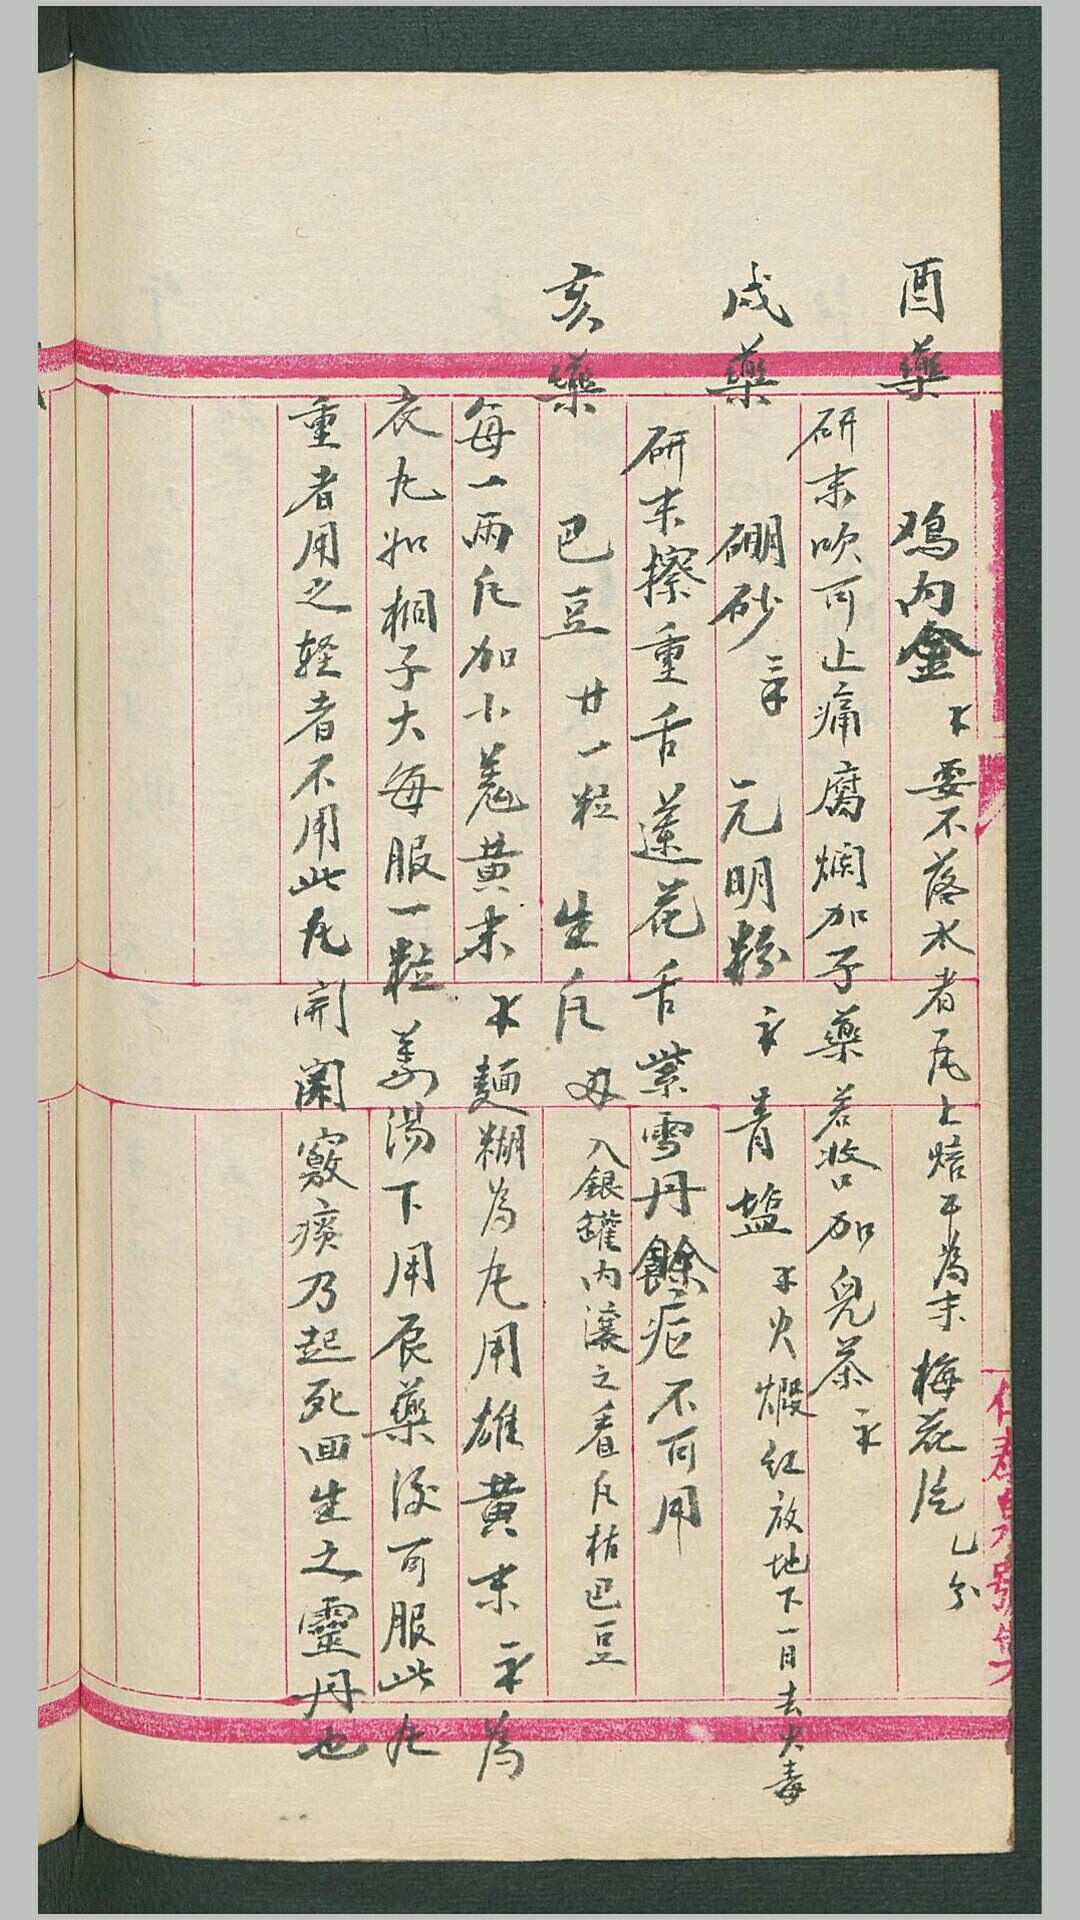 酉藥　鸡内金　要不落水者瓦上焙干為末　梅花片　乙分
研末吹可止痛腐爛加子藥若收口加兒茶
戌藥　硼砂　三　元明粉　青盐　火煅红放地下一日去火毒
研末擦重舌蓮花舌紫雪丹餘症不可用
亥藥　巴豆　廿一粒　生　入銀罐内滚之看　枯巴豆
每一兩　加小　黄末　麺糊為丸用雄黄末　為
衣丸如桐子大每服一粒姜湯下用辰藥後可服此丸
重者用之轻者不用此丸　開関竅痰乃起死回生之靈丹也